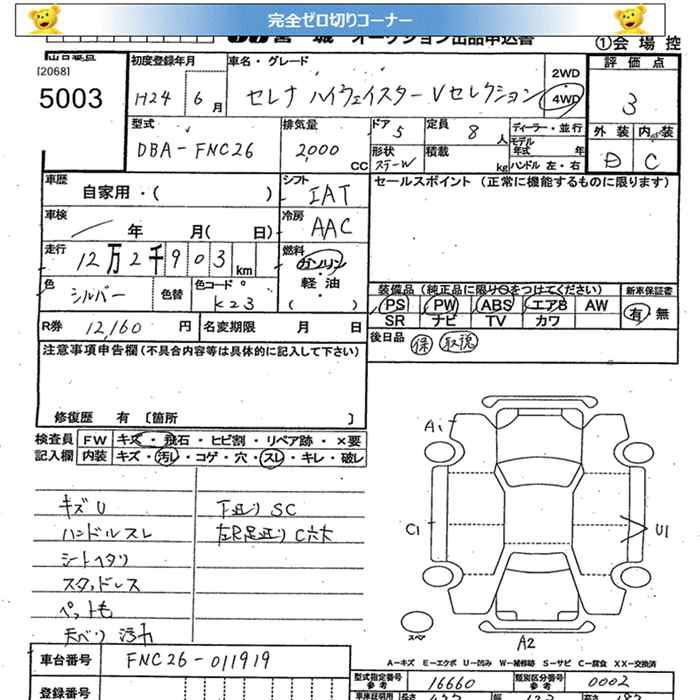 完全ゼロ切りコーナー
宮城 オークション出品申込書
①会場控
出品番号
[2068]
5003
初度登録年月
H24 6月
車名・グレード
セレナ ハイウェイスター Vセレクション
2WD
4WD
評価点
3
外装 内装
D C
型式
DBA-FNC26
排気量
2,000 CC
ドア 5
形状 ステーW
定員 8 人
積載 kg
ディーラー・並行
モデル年式 年
ハンドル 左・右
車歴
自家用・( )
シフト
IAT
セールスポイント (正常に機能するものに限ります)
車検
年 月( 日)
冷房
AAC
走行
12万2千903km
燃料
ガソリン・軽油
( )
色
シルバー
色替
色コード
K23
装備品 (純正品に限り○をつけてください)
PS PW ABS エアB AW
SR ナビ TV カワ
新車保証書
有・無
R券 12,160 円
名変期限 月 日
後日品 保 取説
注意事項申告欄 (不具合内容等は具体的に記入して下さい)
修復歴 有 〔箇所 〕
検査員記入欄
FW キズ・飛石・ヒビ割・リペア跡・×要
内装 キズ・汚レ・コゲ・穴・スレ・キレ・破レ
キズU
ハンドルスレ
シートヘタリ
スタッドレス
ペット毛
天ベリ 汚れ
下廻りSC
左R足廻りC穴大
A1
C1
U1
スペア
A2
A-キズ E-エクボ U-凹み W-補修跡 S-サビ C-腐食 XX-交換済
車台番号 FNC26-011919
登録番号
型式指定番号 参考 16660
類別区分番号 参考 0002